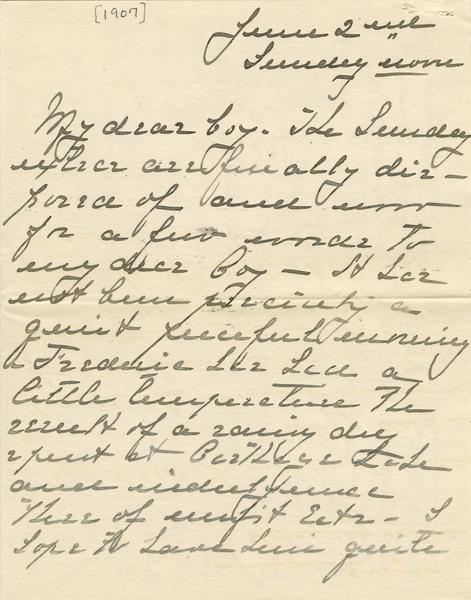 [1907]
June 2nd
Sunday noon
My dear boy. The Sunday
extras are finally dis-
posed of and now
for a few words to
my dear boy — It has
not been precisely a
quiet peaceful morning
Frederic has had a
little temperature the
result of a rainy day
spent at
and indulgence
there of unfit Eats — I
hope to have him quite